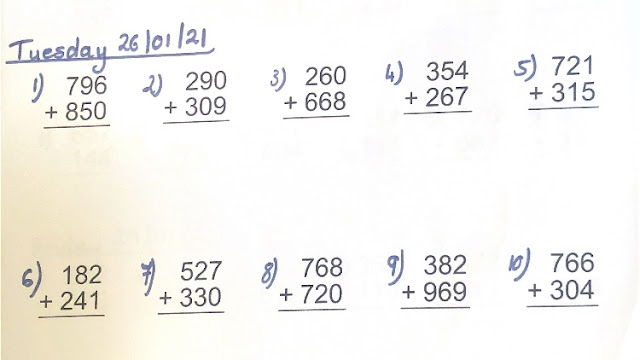 Tuesday 26/01/21
1) 796 2) 290 3) 260 4) 354 5) 721
+ 850 + 309 + 668 + 267 + 315
6) 182 7) 527 8) 768 9) 382 10) 766
+ 241 + 330 + 720 + 969 + 304